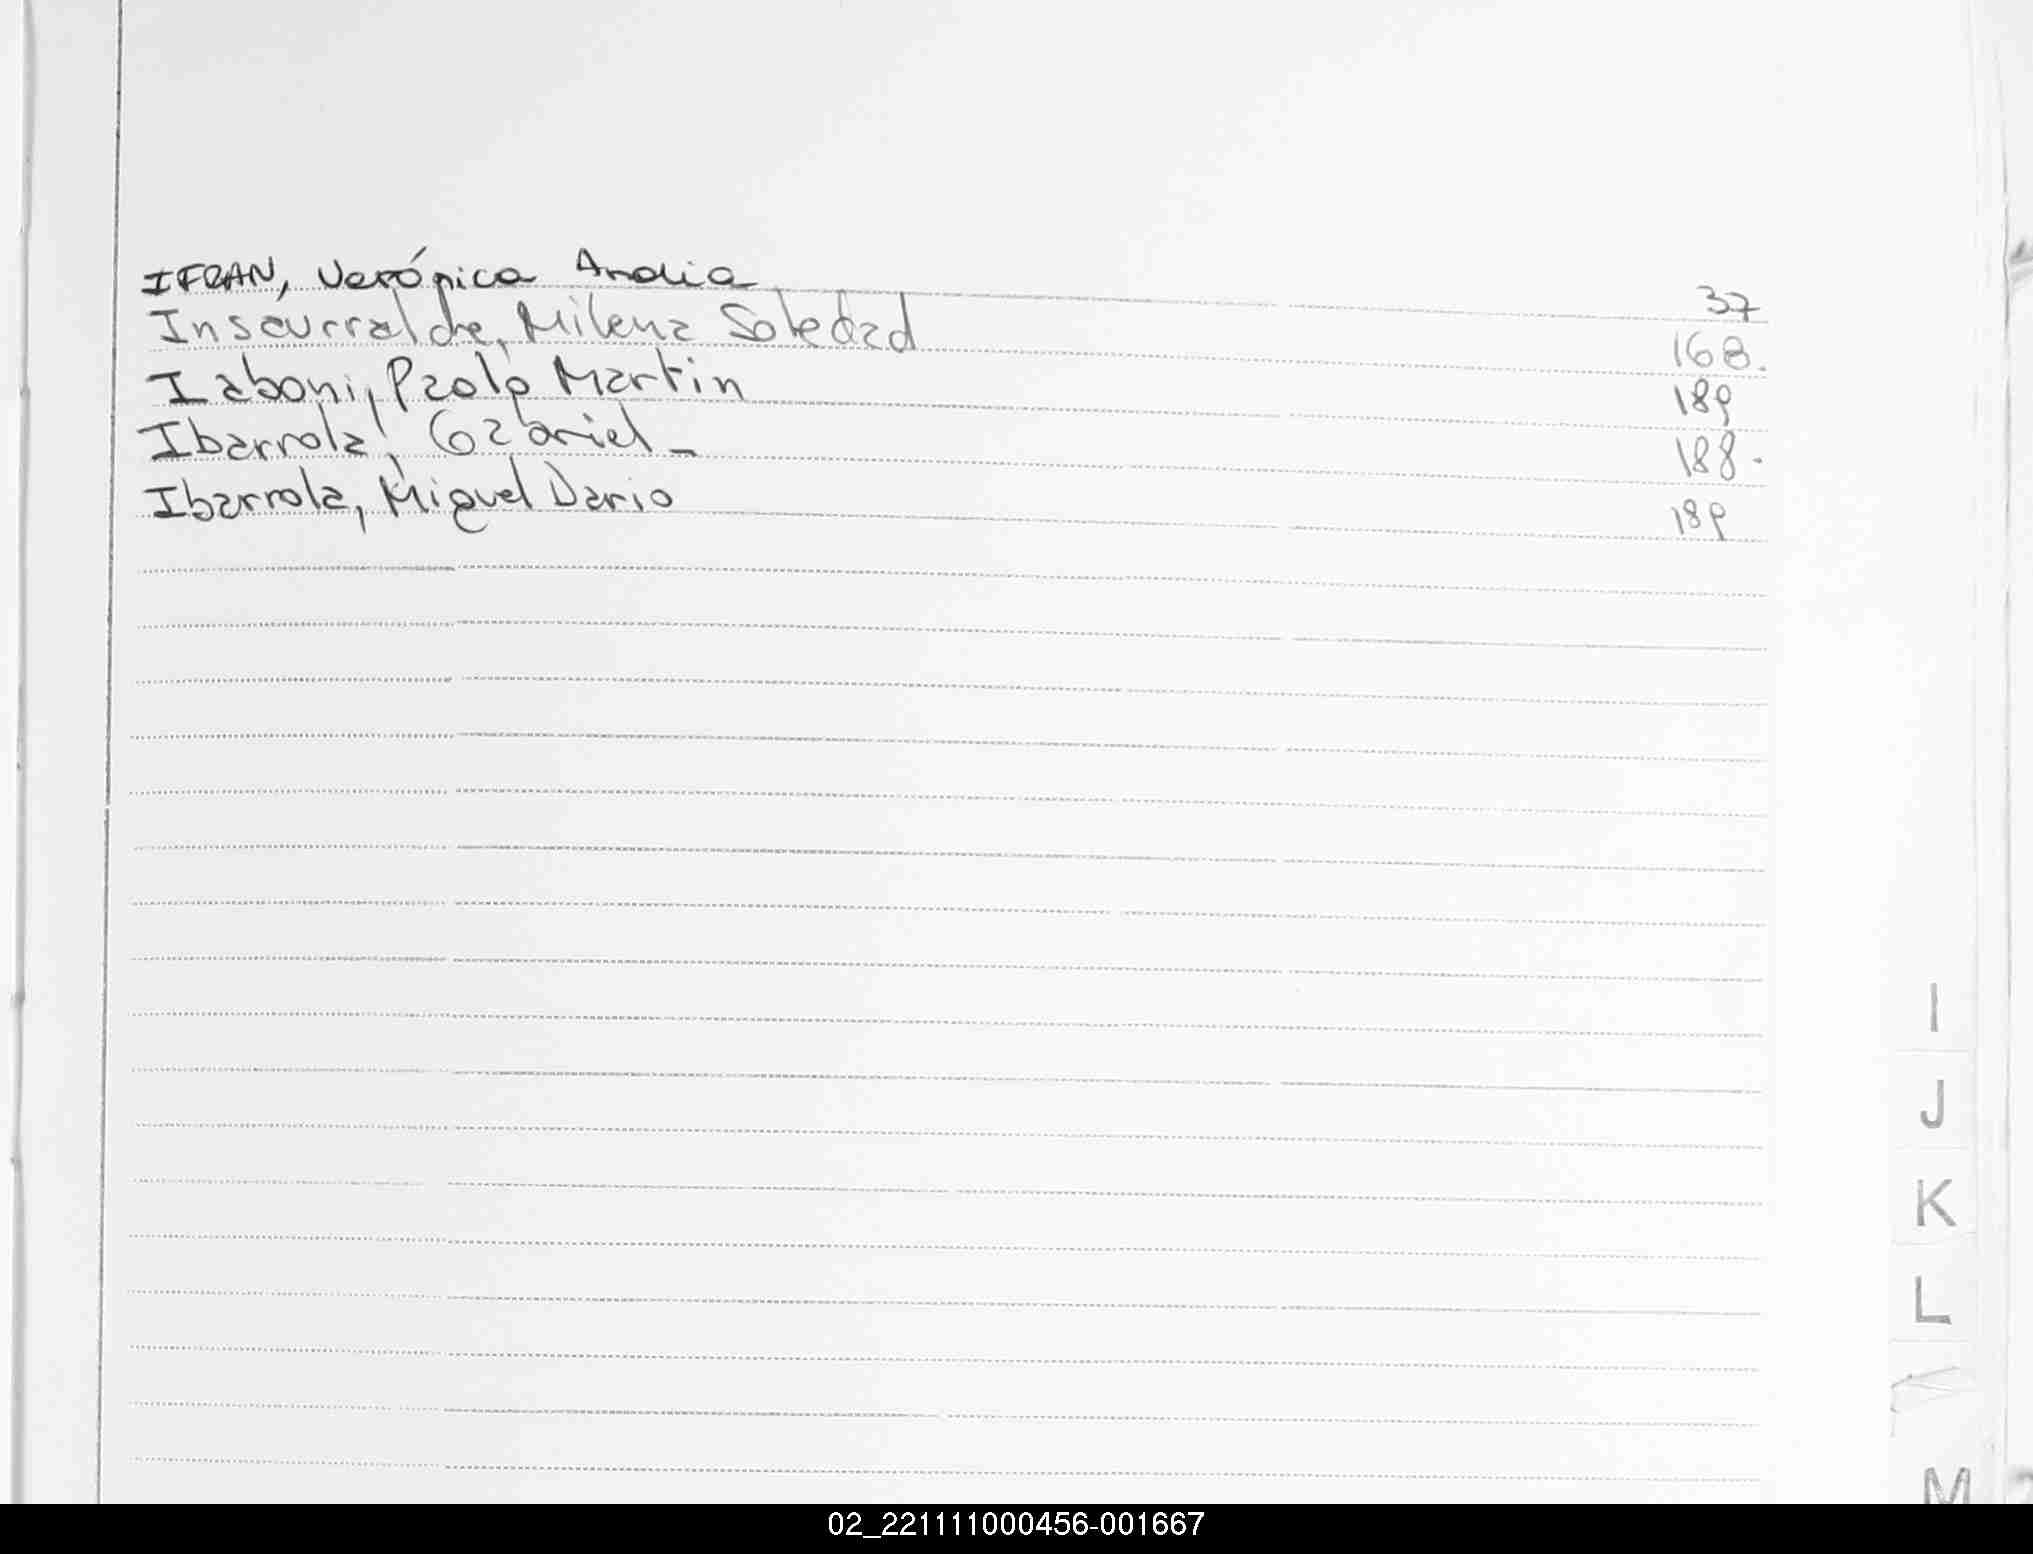 IFRAN, Verónica Analia 37
Insaurralde, Milena Soledad 168.
Iaboni, Paolo Martin 189
Ibarrola, Gabriel - 188.
Ibarrola, Miguel Dario 189
I
J
K
L
M
02_221111000456-001667